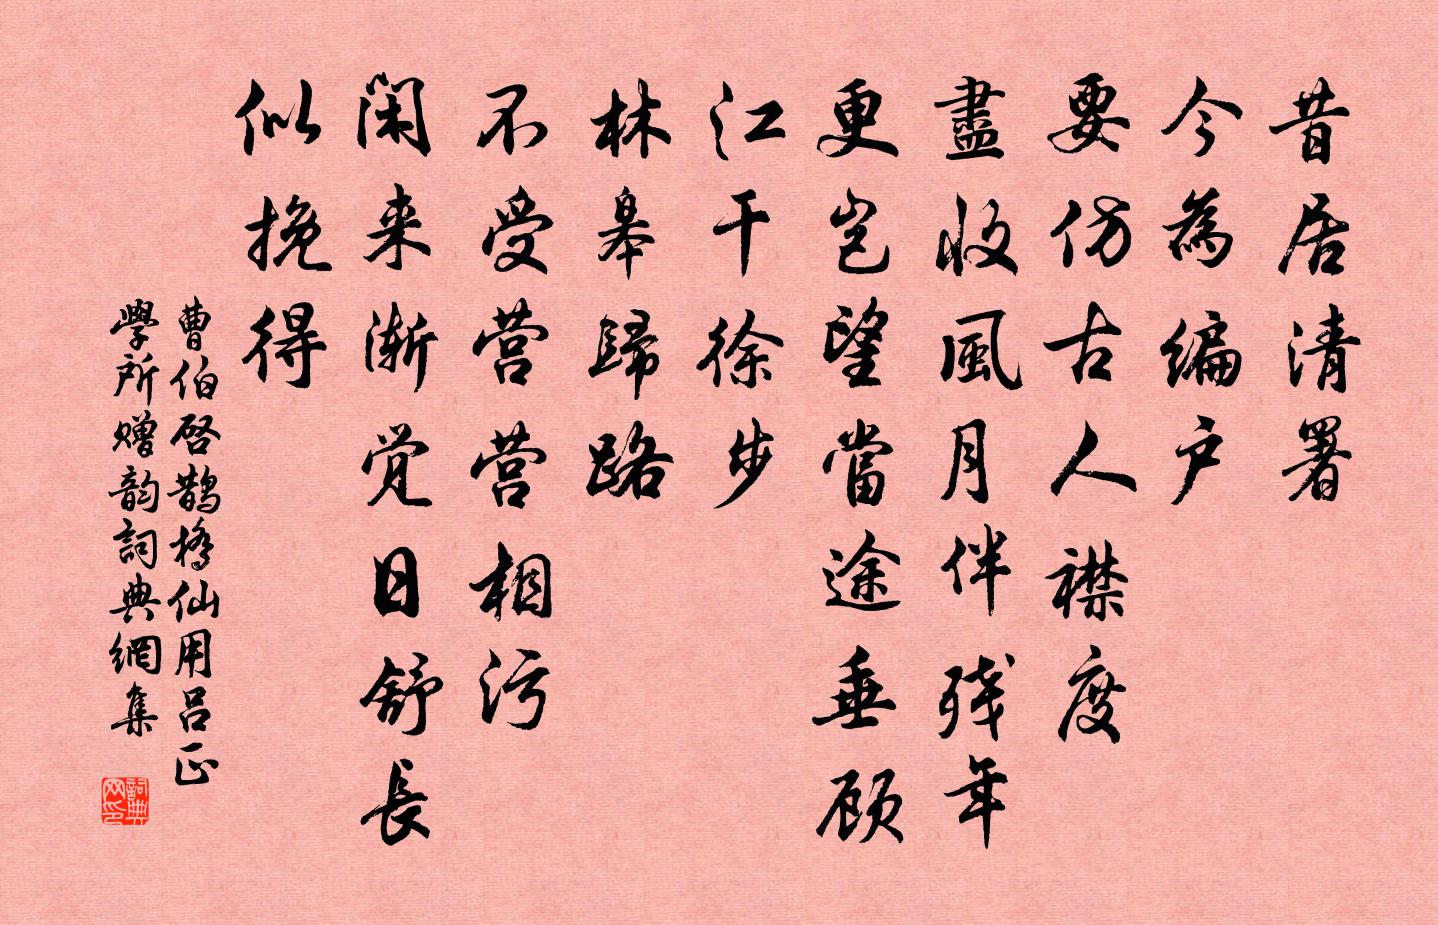 昔居清署
今為编户
要仿古人襟度
盡收風月伴残年
更岂望當途垂顾
江干徐步
林皋歸路
不受营营相污
闲来渐觉日舒長
似挽得
曹伯启鹊橋仙用呂正
學所赠韵詞典網集
詞典网印